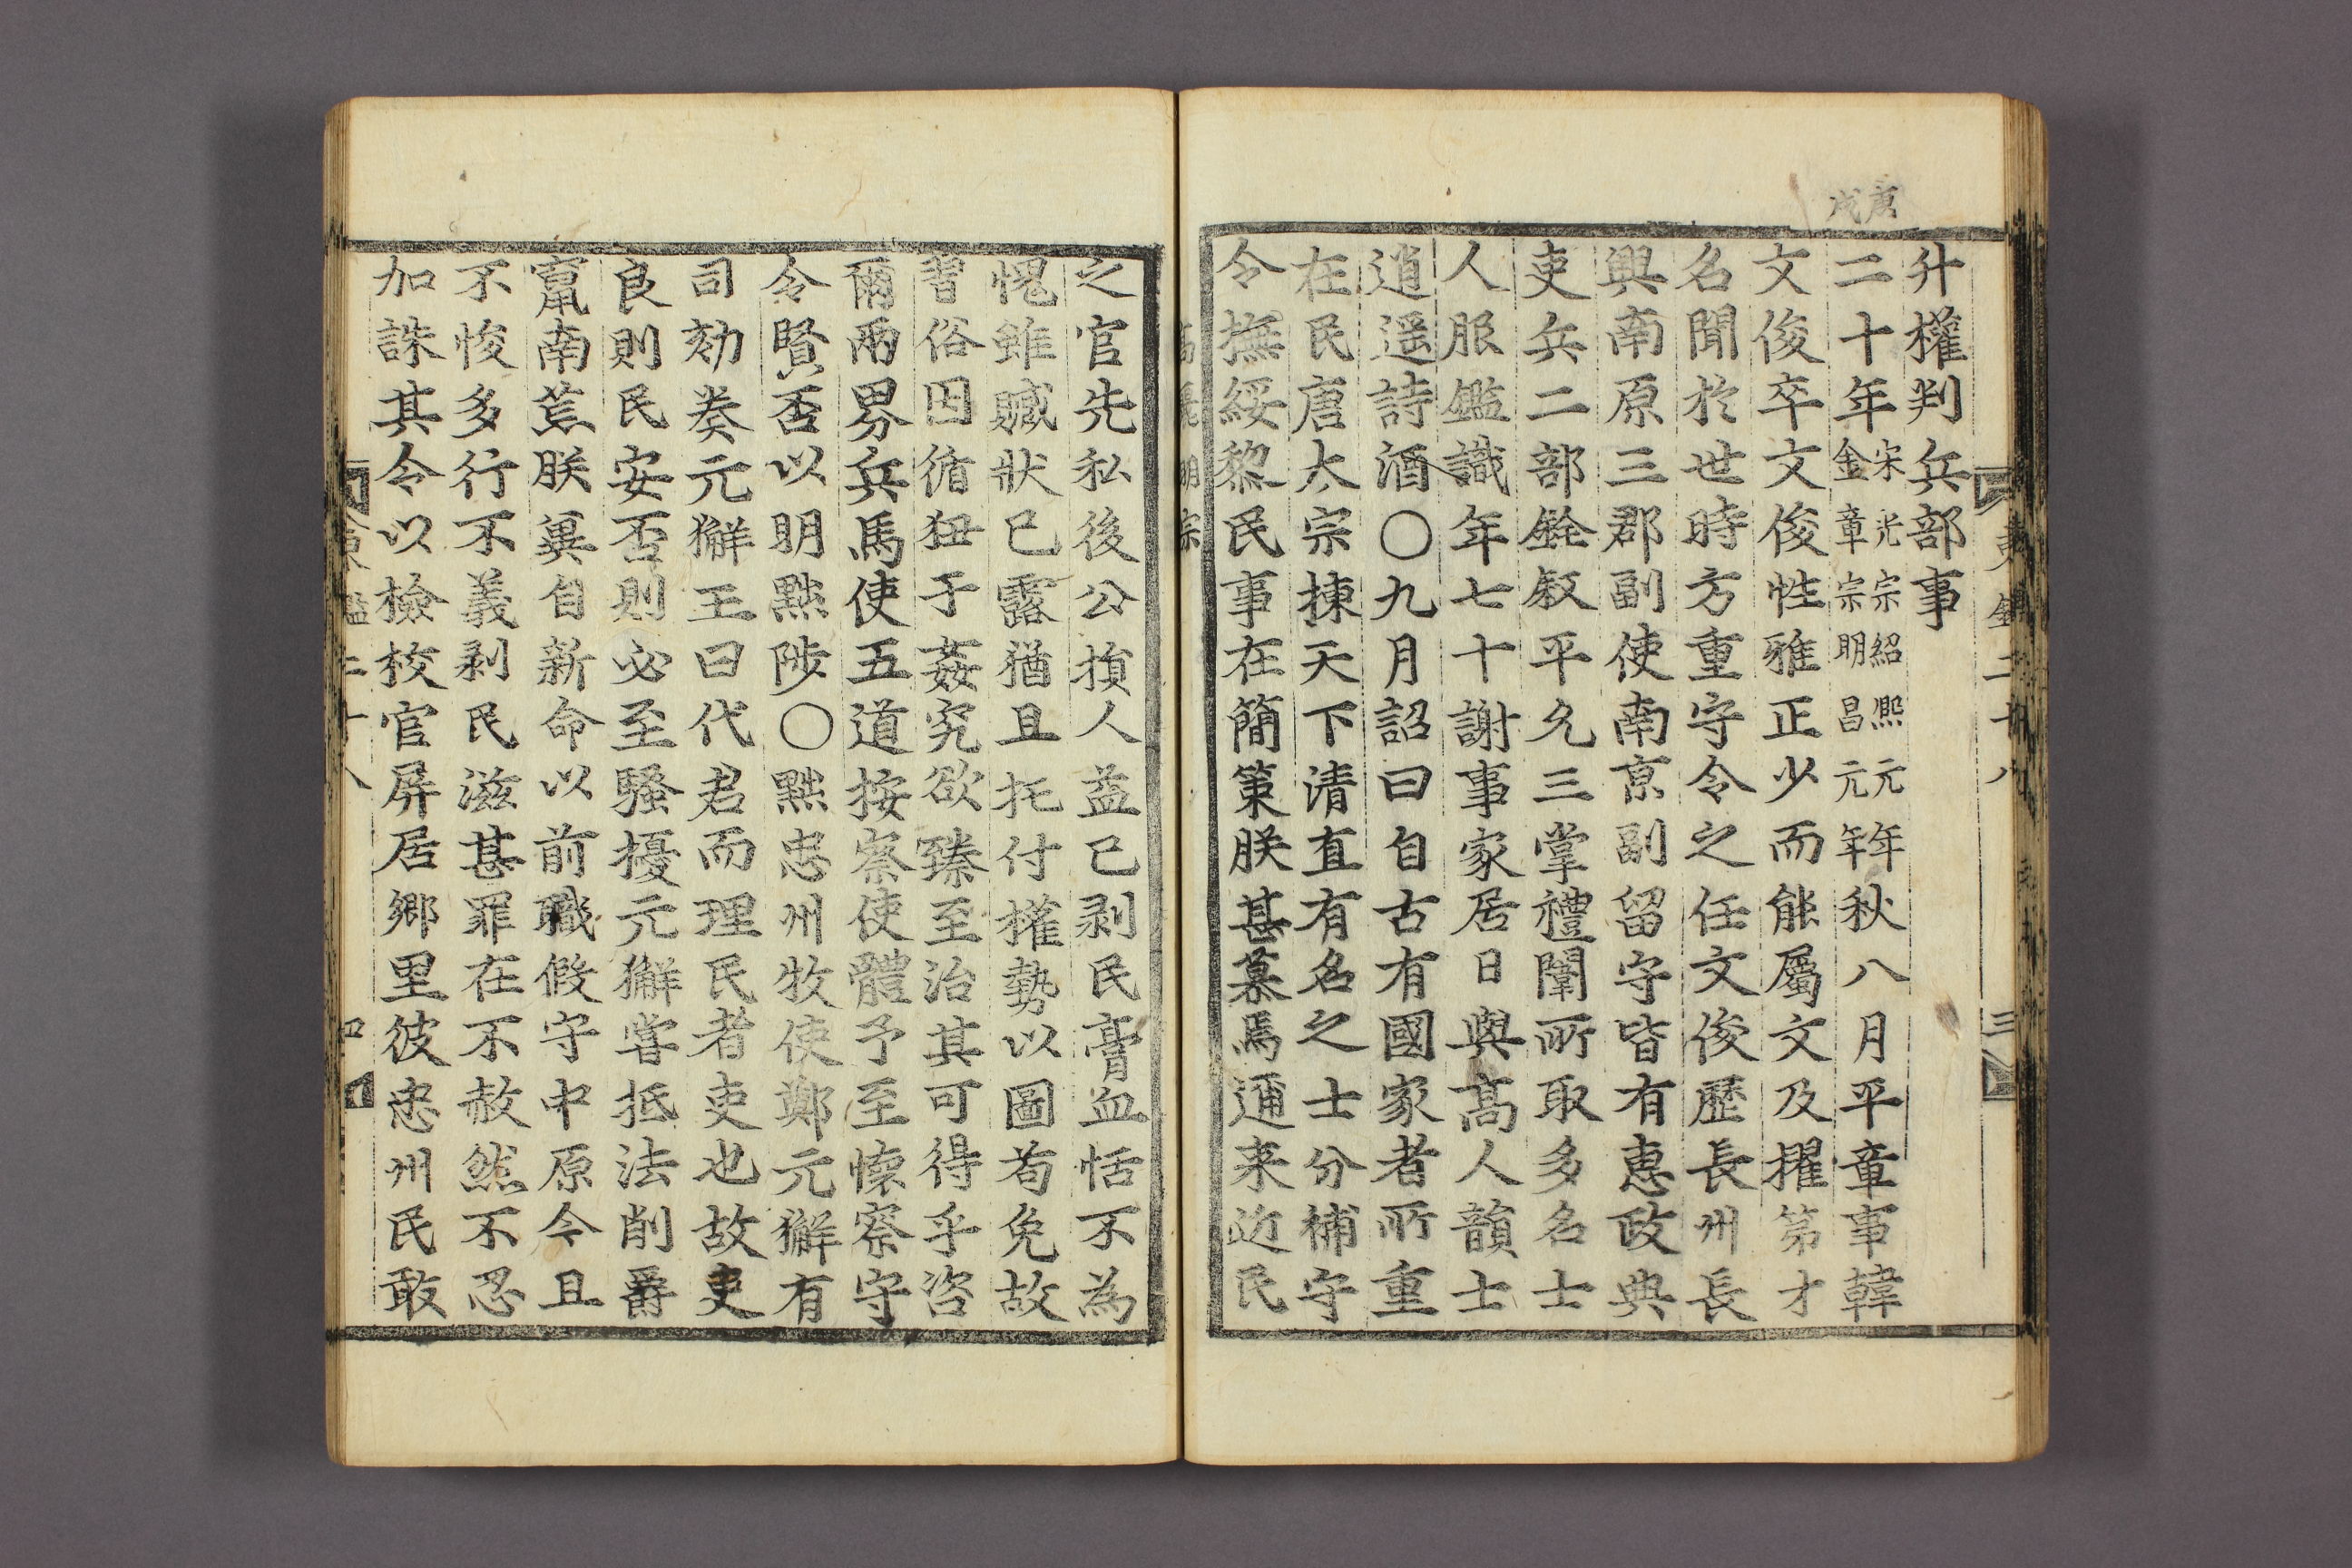 庚戌
升權判兵部事
二十年宋光宗紹熙元年金章宗明昌元年秋八月平章事韓
文俊卒文俊性雅正少而能屬文及擢第才
名聞於世時方重守令之任文俊歷長州長
興南原三郡副使南京副留守皆有惠政典
吏兵二部銓敍平允三掌禮闈所取多名士
人服鑑識年七十謝事家居日與高人韻士
逍遥詩酒〇九月詔曰自古有國家者所重
在民唐太宗揀天下清直有名之士分補守
令撫綏黎民事在簡策朕甚慕焉邇来近民
之官先私後公損人益己剥民膏血恬不為
愧雖贓狀已露猶且托付權勢以圖苟免故
習俗因循狃于姦宄欲臻至治其可得乎咨
爾兩界兵馬使五道按察使體予至懷察守
令賢否以明黜陟〇黜忠州牧使鄭元獬有
司劾奏元獬王曰代君而理民者吏也故吏
良則民安否則必至騷擾元獬嘗抵法削爵
竄南荒朕冀自新命以前職假守中原今且
不悛多行不義剥民滋甚罪在不赦然不忍
加誅其令以檢校官屏居鄉里彼忠州民敢